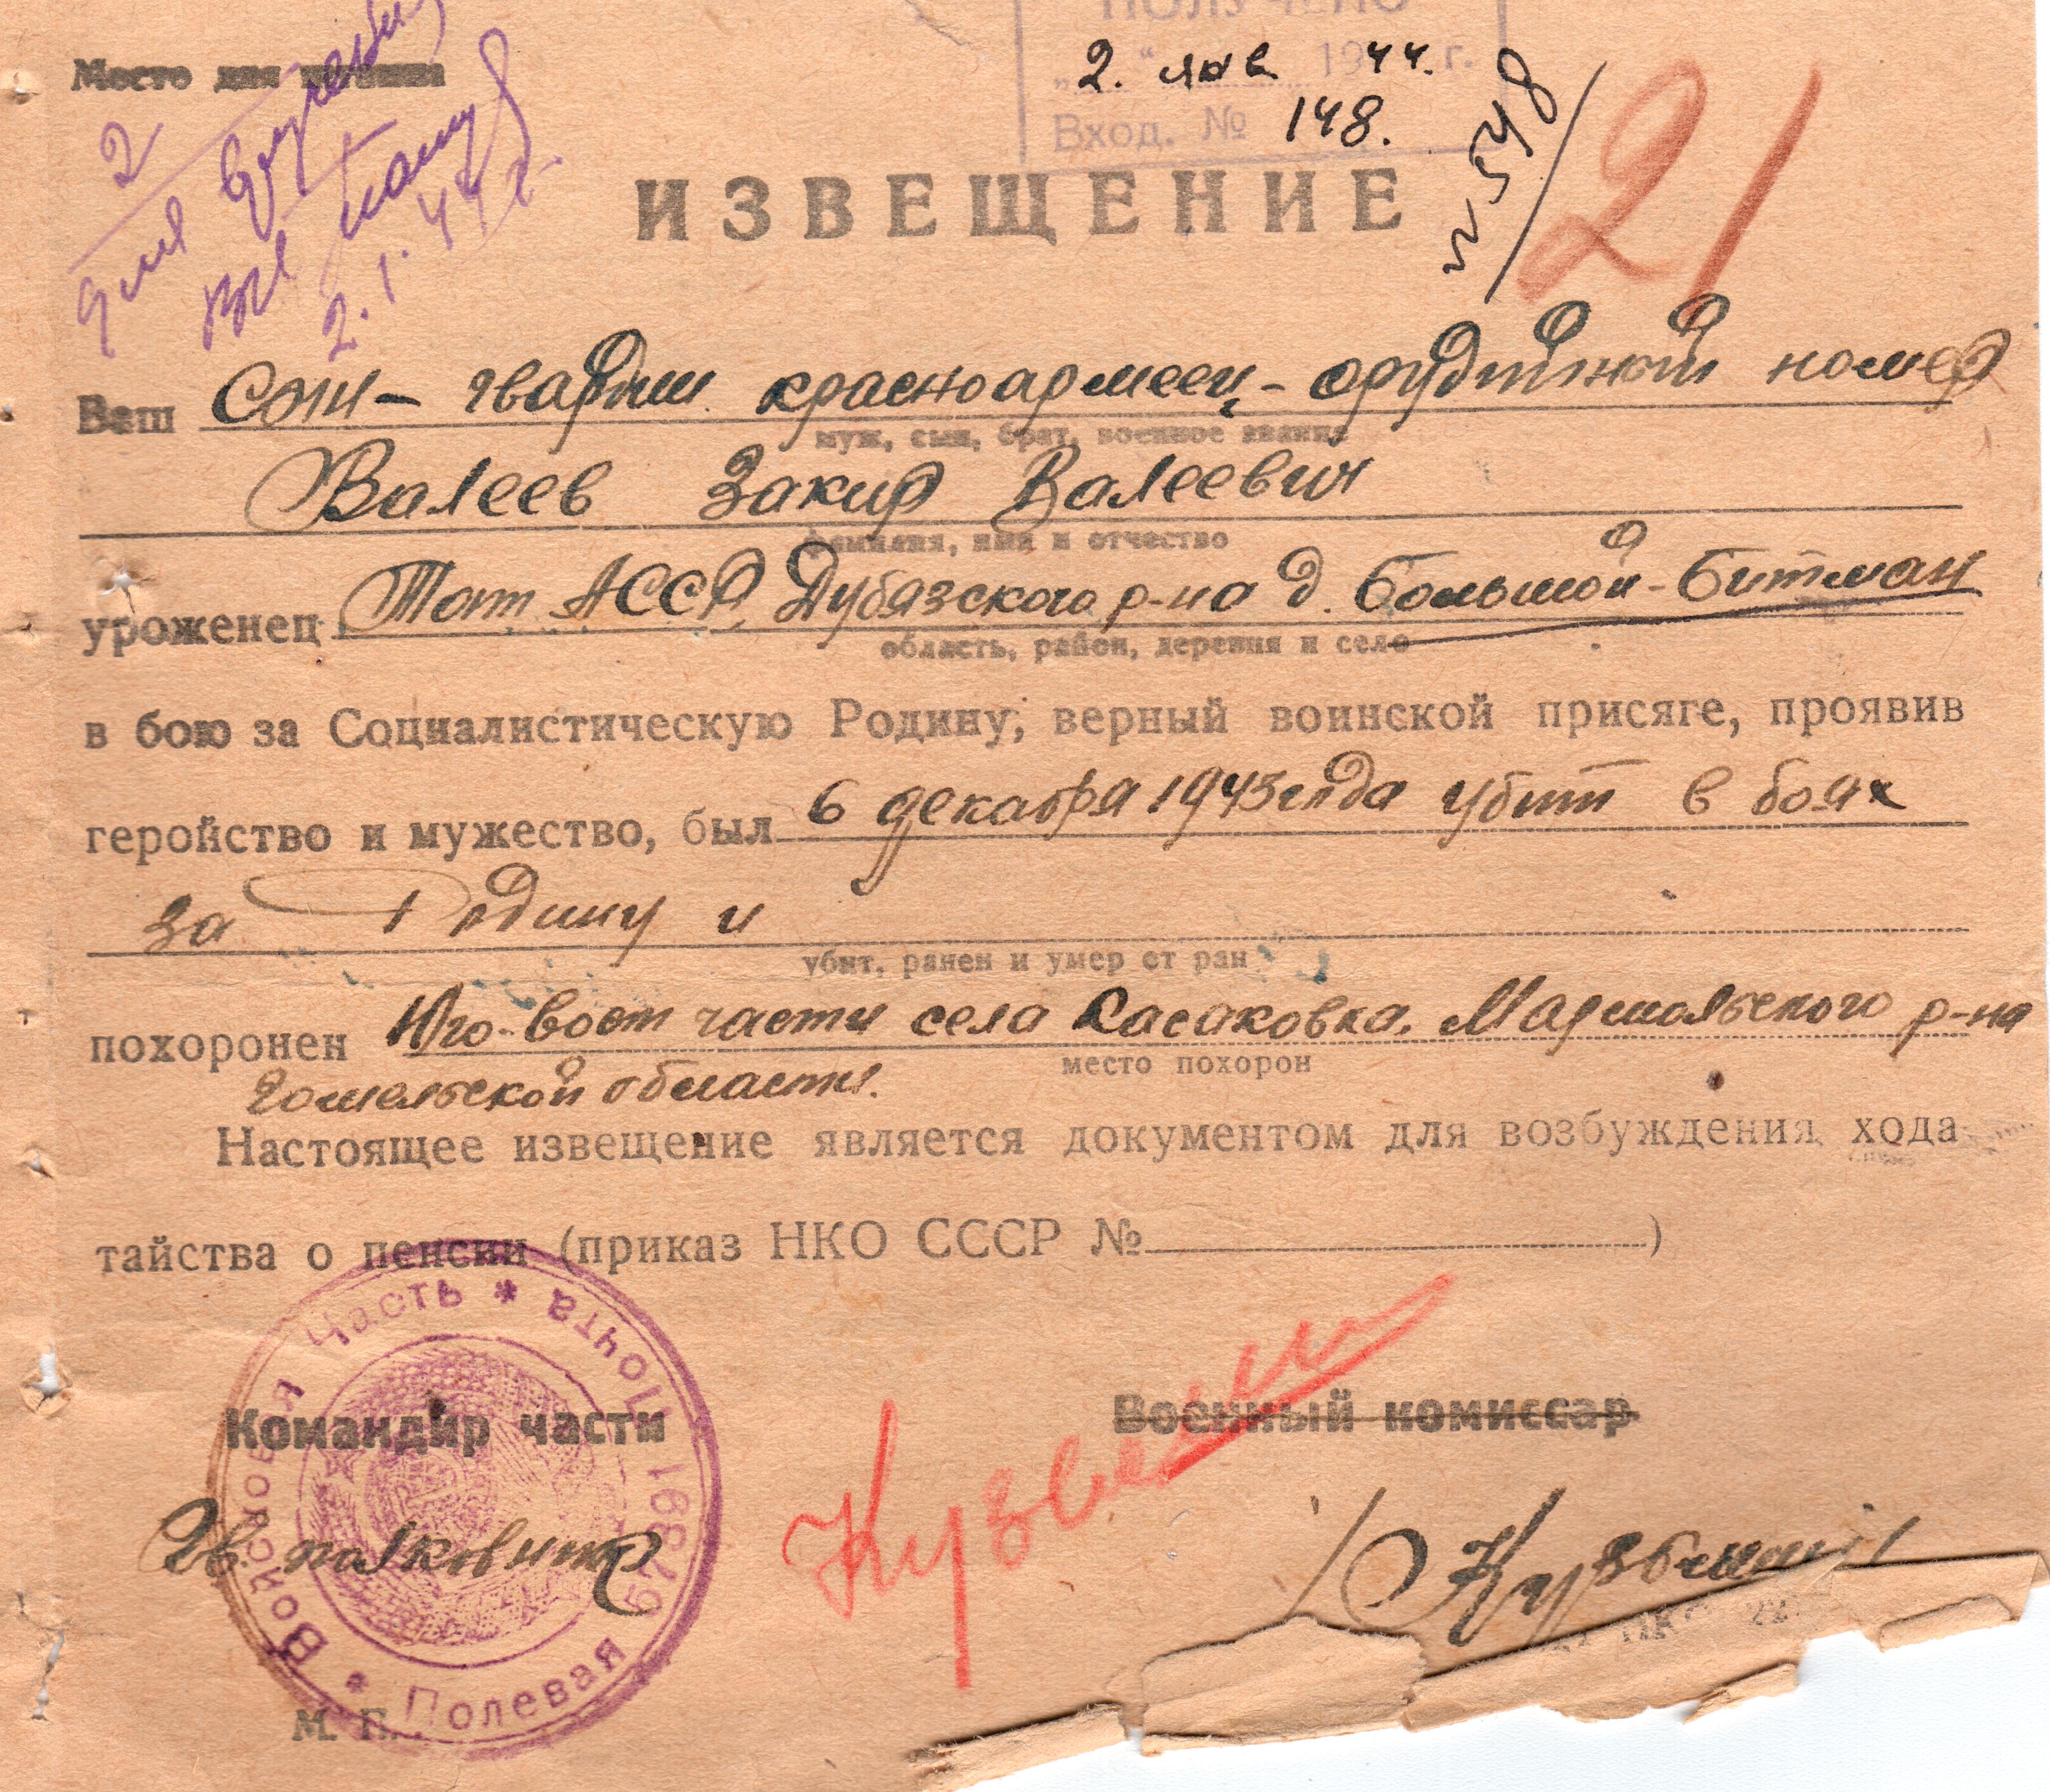 Место для штампа
ПОЛУЧЕНО
2. янв 1944. г.
Вход. № 148.
№ 548
21
2
для вручения
2.1.44 г.
ИЗВЕЩЕНИЕ
Ваш сын - гвардии красноармеец - орудийный номер
муж, сын, брат, военное звание
Валеев Закир Валеевич
фамилия, имя и отчество
уроженец Тат АССР, Дубязского р-на д. Большой-Битман
область, район, деревня и село
в бою за Социалистическую Родину, верный воинской присяге, проявив
геройство и мужество, был 6 декабря 1943 года убит в боях
за Родину и
убит, ранен и умер от ран
похоронен Юго-вост части села Касаковка.  р-на
место похорон
Гомельской области.
Настоящее извещение является документом для возбуждения хода
тайства о пенсии (приказ НКО СССР №        )
Командир части
Военный комиссар
Гв. полковник
Войсковая Часть * Полевая Почта 16879 *
М. П.